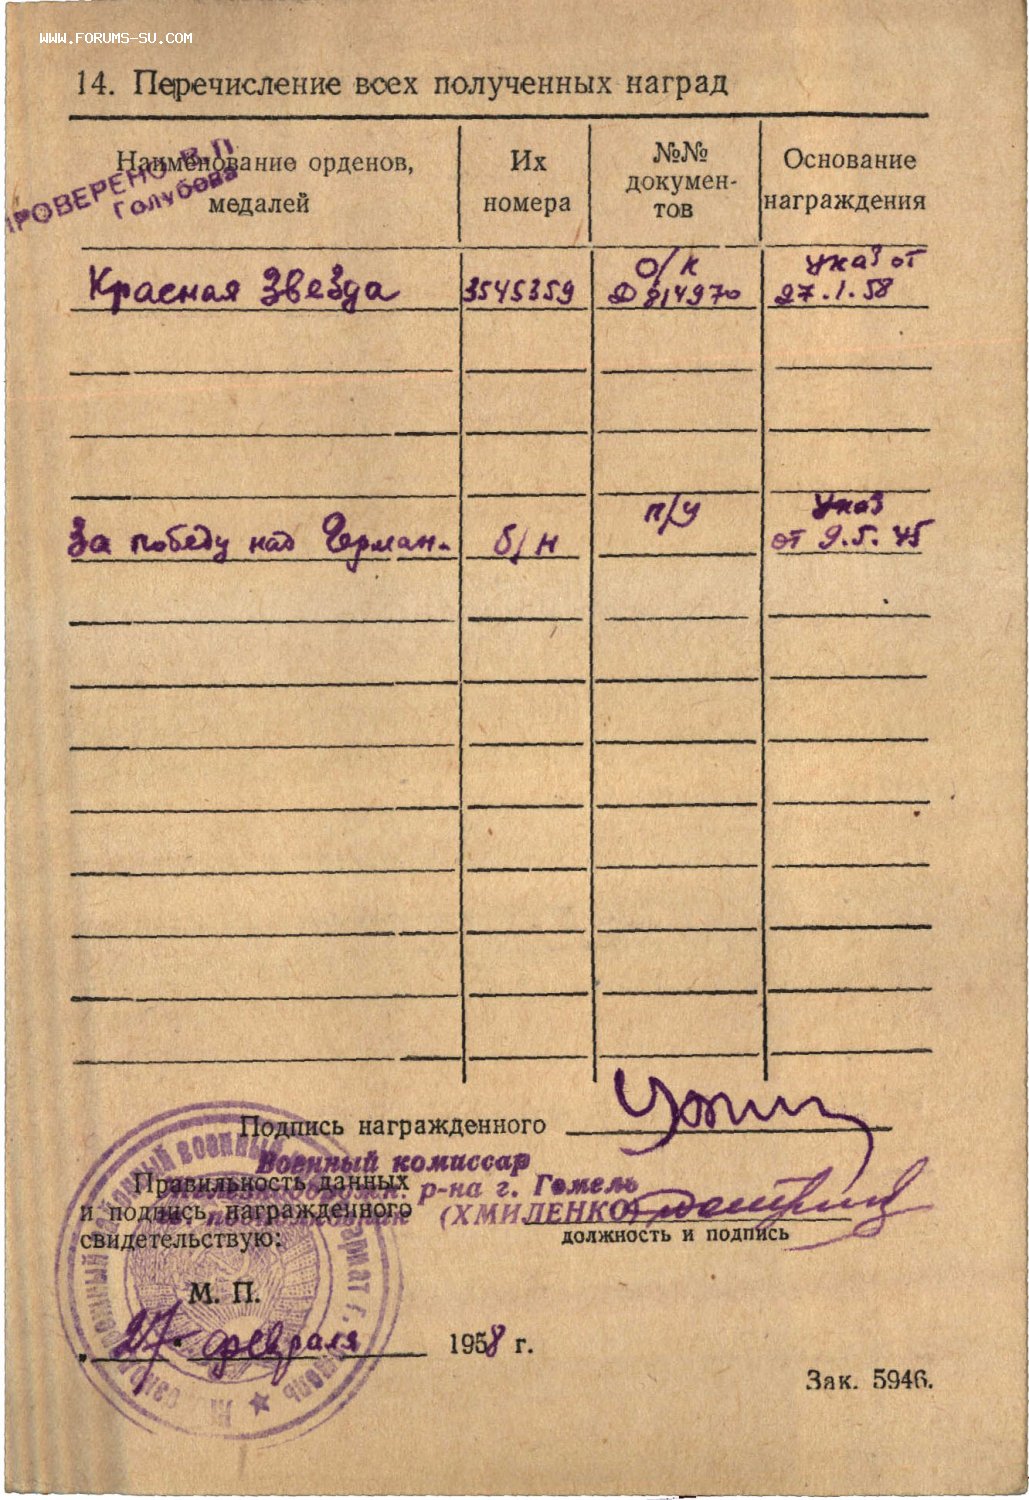 WWW.FORUMS-SU.COM
14. Перечисление всех полученных наград
ПРОВЕРЕНО В.П
Голубова
Наименование орденов, медалей
Их номера
№№ докумен-тов
Основание награждения
Красная Звезда
3545359
О/К
указ от 27.1.58
За победу над Герман.
б/н
п/у
Указ от 9.5.45
Подпись награжденного
Военный комиссар
р-на г. Гомель
Правильность данных
и подпись награжденного
подполковник (ХМИЛЕНКО)
свидетельствую:
должность и подпись
М. П.
27 февраля 1958 г.
Зак. 5946.